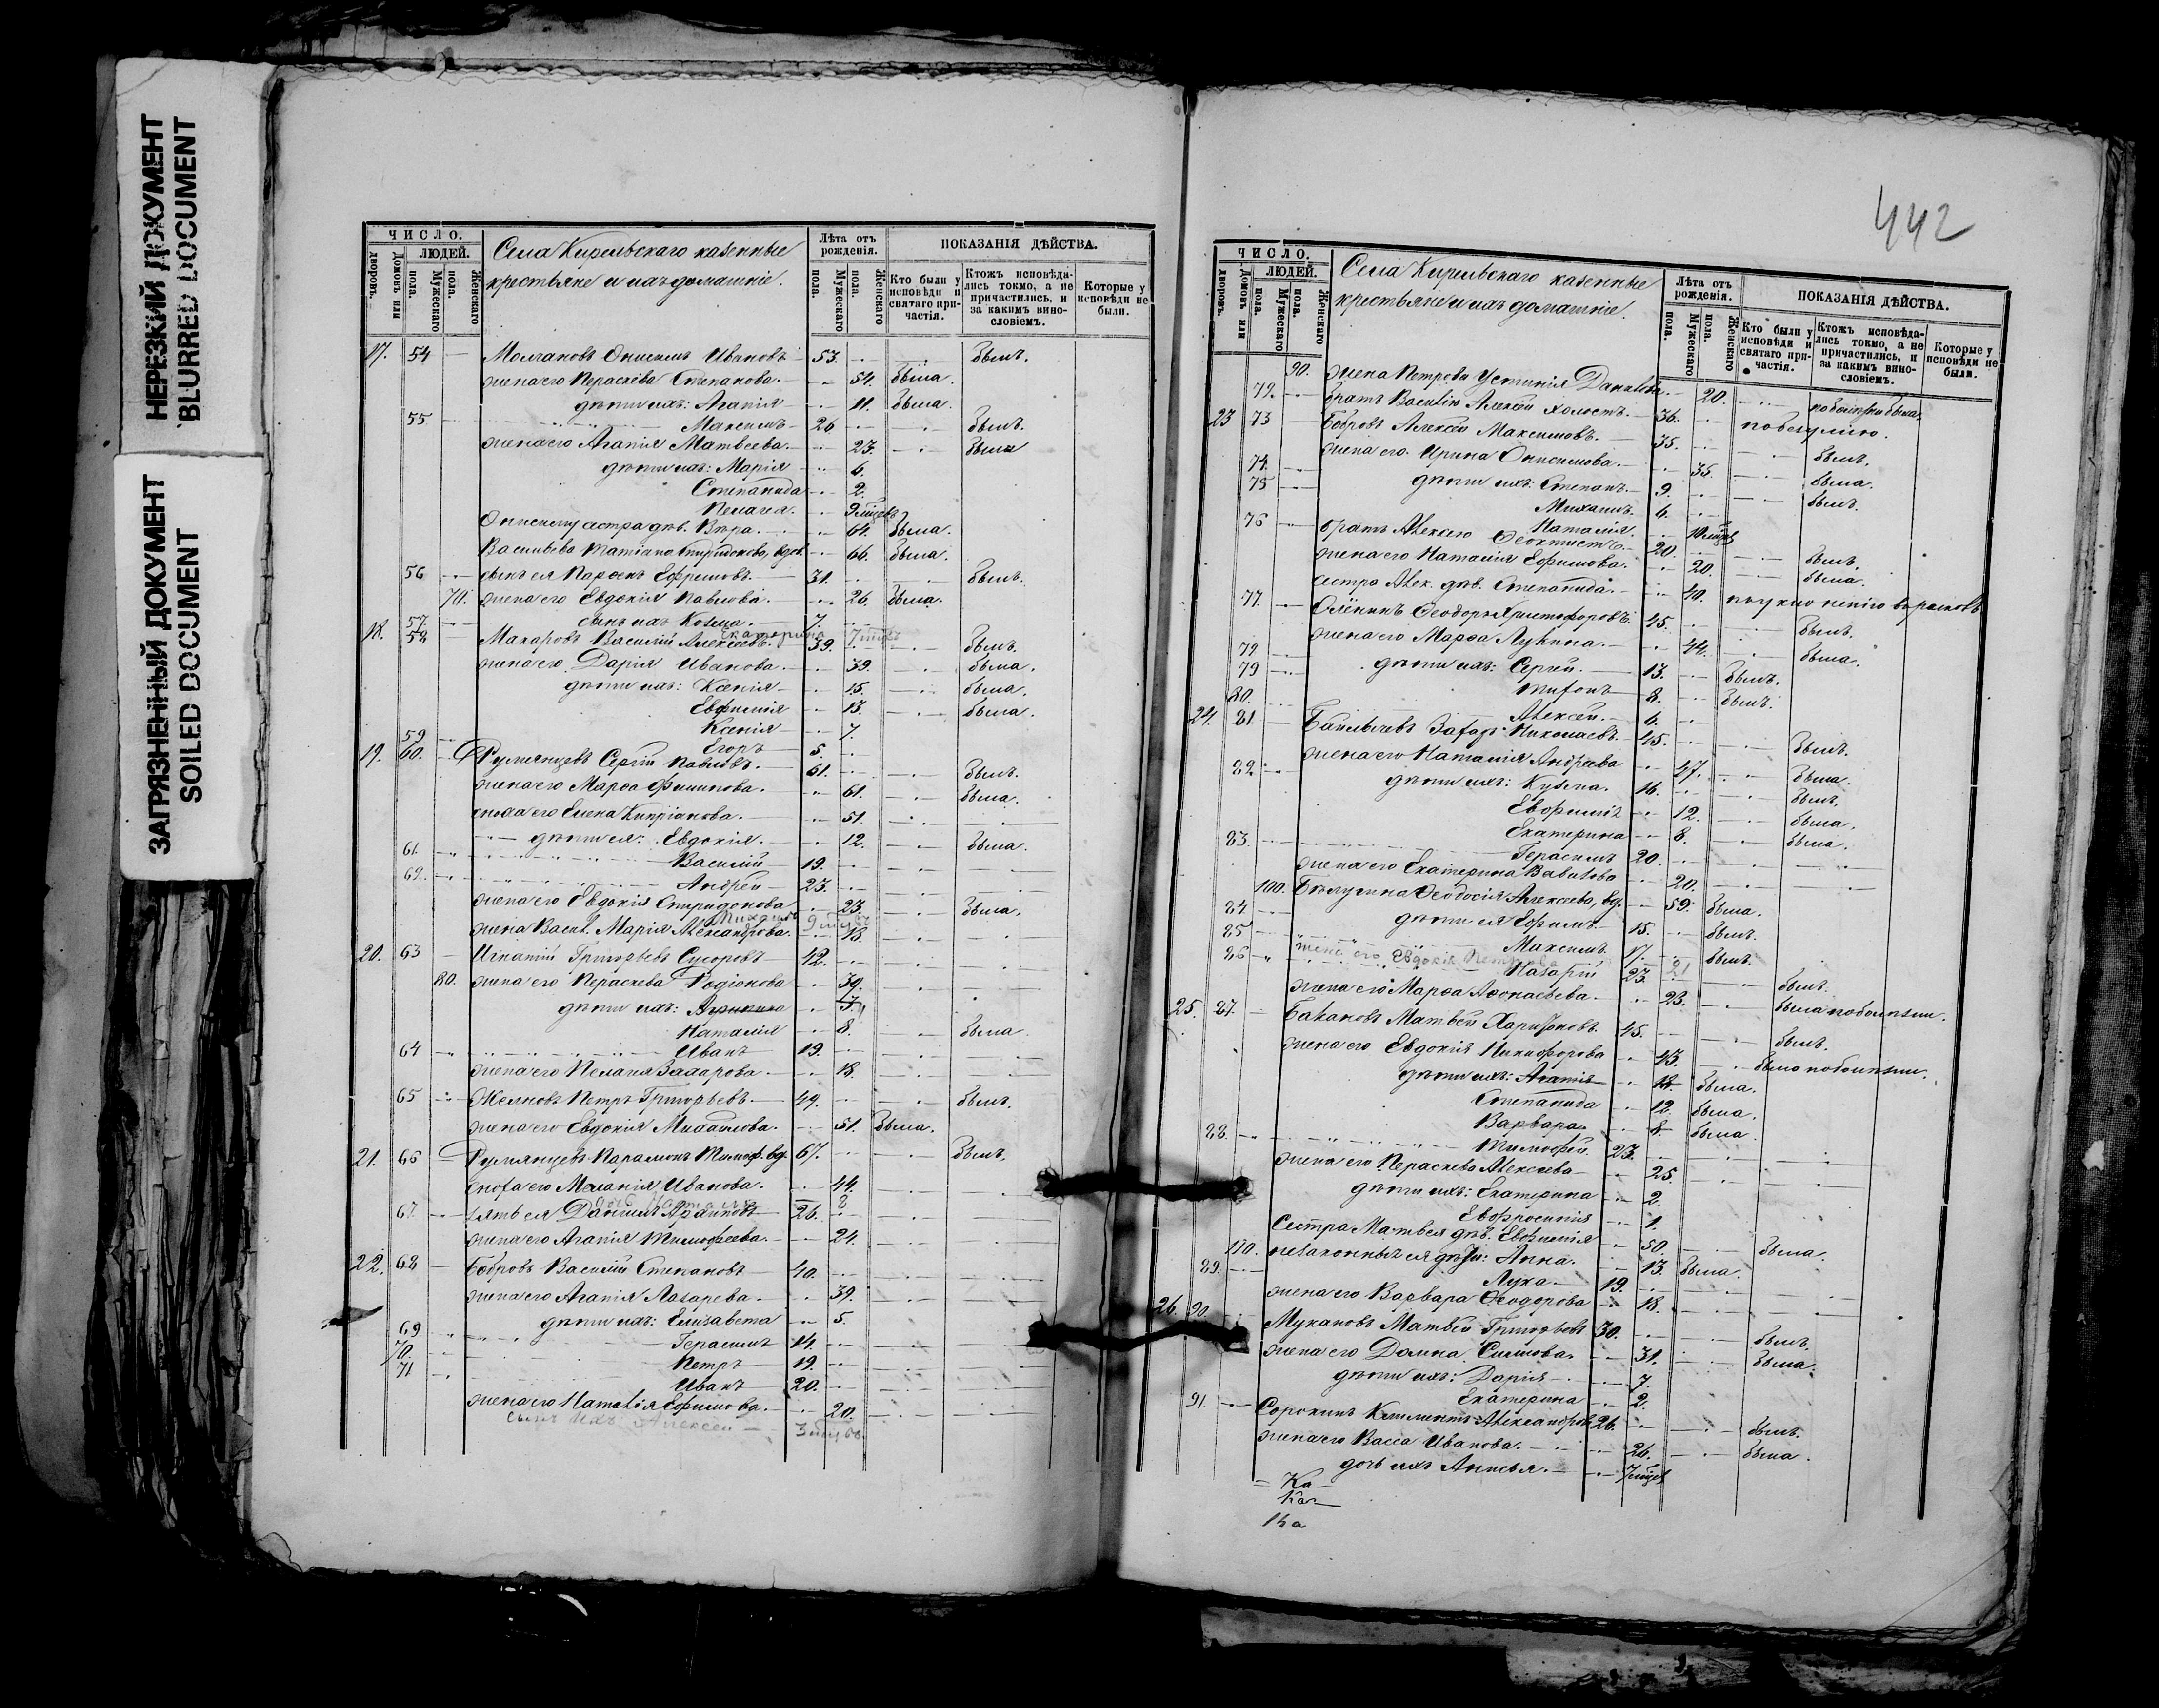 НЕРЕЗКИЙ ДОКУМЕНТ
BLURRED DOCUMENT
ЗАГРЯЗНЕННЫЙ ДОКУМЕНТ
SOILED DOCUMENT
ЧИСЛО.
ЛЮДЕЙ.
Домовъ или дворовъ.
Мужескаго пола.
Женскаго пола.
Села Кирельскаго казенные
крестьяне и ихъ домашніе.
Лѣта отъ рожденія.
Мужескаго пола.
Женскаго пола.
ПОКАЗАНІЯ ДѢЙСТВА.
Кто были у исповѣди и святаго причастія.
Ктожъ исповѣдались токмо, а не причастились, и за какимъ винословіемъ.
Которые у исповѣди не были.
17. 54 Молчановъ Онисимъ Ивановъ 53. былъ.
жена его Пераскева Степанова. 54. была.
дѣти ихъ: Агапія 11. была.
55 Максимъ 26 былъ.
жена его Агапія Матвеева. 23. была
дѣти ихъ: Марія 6.
Степанида 2.
Пелагея. 9 мцевъ
Онисиму сестра дѣв. Вѣра. 64. была.
Васильева Татіана Спиридонова, вдов. 66. была.
56 сынъ ея Парѳенъ Ефимовъ. 31. былъ.
70. жена его Евдокія Павлова. 26. была.
57. сынъ ихъ Козма. 7.
Екатерина 7 мцъ
18. 58 Макаровъ Василій Алексѣевъ. 39. былъ.
жена его Дарія Иванова. 39. была.
дѣти ихъ: Ксенія 15. была.
Евфимія 13. была.
Ксенія 7.
59 Егоръ 5.
19. 60. Румянцевъ Сергій Павловъ. 61. былъ.
жена его Марѳа Филипова. 61. была.
сноха его Елена Кипріанова. 51.
дѣти ея: Евдокія. 12. была.
61. Василій 19.
62. Андрей 23.
жена его Евдокія Спиридонова 23 была.
Михаилъ 9 мцевъ
жена Васил. Марія Александрова. 18.
20. 63 Игнатій Григорьевъ Сусоровъ 42.
80. жена его Пераскева Родіонова 39.
дѣти ихъ:
Наталія 8. была
64 Иванъ 19.
жена его Пелагея Захарова. 18.
65 Желновъ Петръ Григорьевъ. 49. былъ.
жена его Евдокія Михайлова. 51. была.
21. 66 Румянцевъ Парамонъ Тимоф. вд. 67. былъ.
Сноха его Меланія Иванова. 44.
дочь Наталія 8
67. зять ея Даніилъ 26.
жена его Агапія Тимофеева. 24.
22. 68 Бобровъ Василій Степановъ 40.
жена его Агапія Лазарева. 39.
дѣти ихъ: Елизавета 5.
69 Герасимъ 14.
70. Петръ 19.
71 Иванъ 20.
жена его Наталія Ефимова. 20.
сынъ ихъ Алексей 3 мцевъ
442
ЧИСЛО.
ЛЮДЕЙ.
Домовъ или дворовъ.
Мужескаго пола.
Женскаго пола.
Села Кирельскаго казенные
крестьяне и ихъ домашніе.
Лѣта отъ рожденія.
Мужескаго пола.
Женскаго пола.
ПОКАЗАНІЯ ДѢЙСТВА.
Кто были у исповѣди и святаго причастія.
Ктожъ исповѣдались токмо, а не причастились, и за какимъ винословіемъ.
Которые у исповѣди не были.
90. жена Петрова Устинія Данилова. 20. была.
72. братъ Василію Алексѣй холостъ. 36. по безумію.
23 73 Бобровъ Алексѣй Максимовъ. 35. былъ.
жена его Ирина Онисимова. 35. была.
74. дѣти ихъ: Степанъ 9. былъ.
75 Михаилъ 6.
Наталія. 10 мцевъ
76 братъ Алексѣю Ѳеоктистъ 20. былъ.
жена его Наталія Ефимова. 20. была.
сестра Алек. дѣв. Степанида. 40. по уклоненію въ расколъ
77. Олёнинъ Ѳеодоръ Христофоровъ. 45. былъ.
жена его Марѳа Лукина. 44. была.
78 дѣти ихъ: Сергій. 13. былъ.
79 Тифонъ 8. былъ.
80. Алексей. 6.
24. 81 Захаръ Николаевъ 45. былъ.
жена его Наталія Андреева 47. была.
82 дѣти ихъ: Кузма. 16. былъ.
Евфимія 12. была.
Екатерина 8. была.
83. Герасимъ 20.
жена его Екатерина Вавилова 20.
100. Бѣлугина Ѳеодосія Алексеева, вд. 59. была.
84 дѣти ея Ефимъ 15. былъ.
85 Максимъ 17. былъ.
жена его Евдокія Петрова 21
86 Назарій 23. былъ.
жена его Марѳа Аѳонасьева. 23. была по болѣзни.
25. 87. Бакановъ Матвей Харитоновъ. 45. былъ.
жена его Евдокія Никифорова 43. была по болѣзни.
дѣти ихъ: Агапія 18. была.
Степанида 12. была.
Варвара. 8. была.
88. Тимофей. 23.
жена его Пераскева Алексеева 25.
дѣти ихъ: Екатерина 2.
Евфросинія 1.
Сестра Матвея дѣв. Евфимія 50. была.
110. незаконныя ея дѣти: Анна. 13. была.
89. Лука. 19.
жена его Варвара Ѳеодорова 18.
26. 90. Мукановъ Матвѣй Григорьевъ 30. былъ.
жена его Домна Силиова. 31. была.
дѣти ихъ: Дарія 7.
Екатерина 2.
91. Сорокинъ Климентъ Александров. 26. былъ.
жена его Васса Иванова. 26. была.
дочь ихъ Анисья. 7 мцев
Ка
Ка
Ка